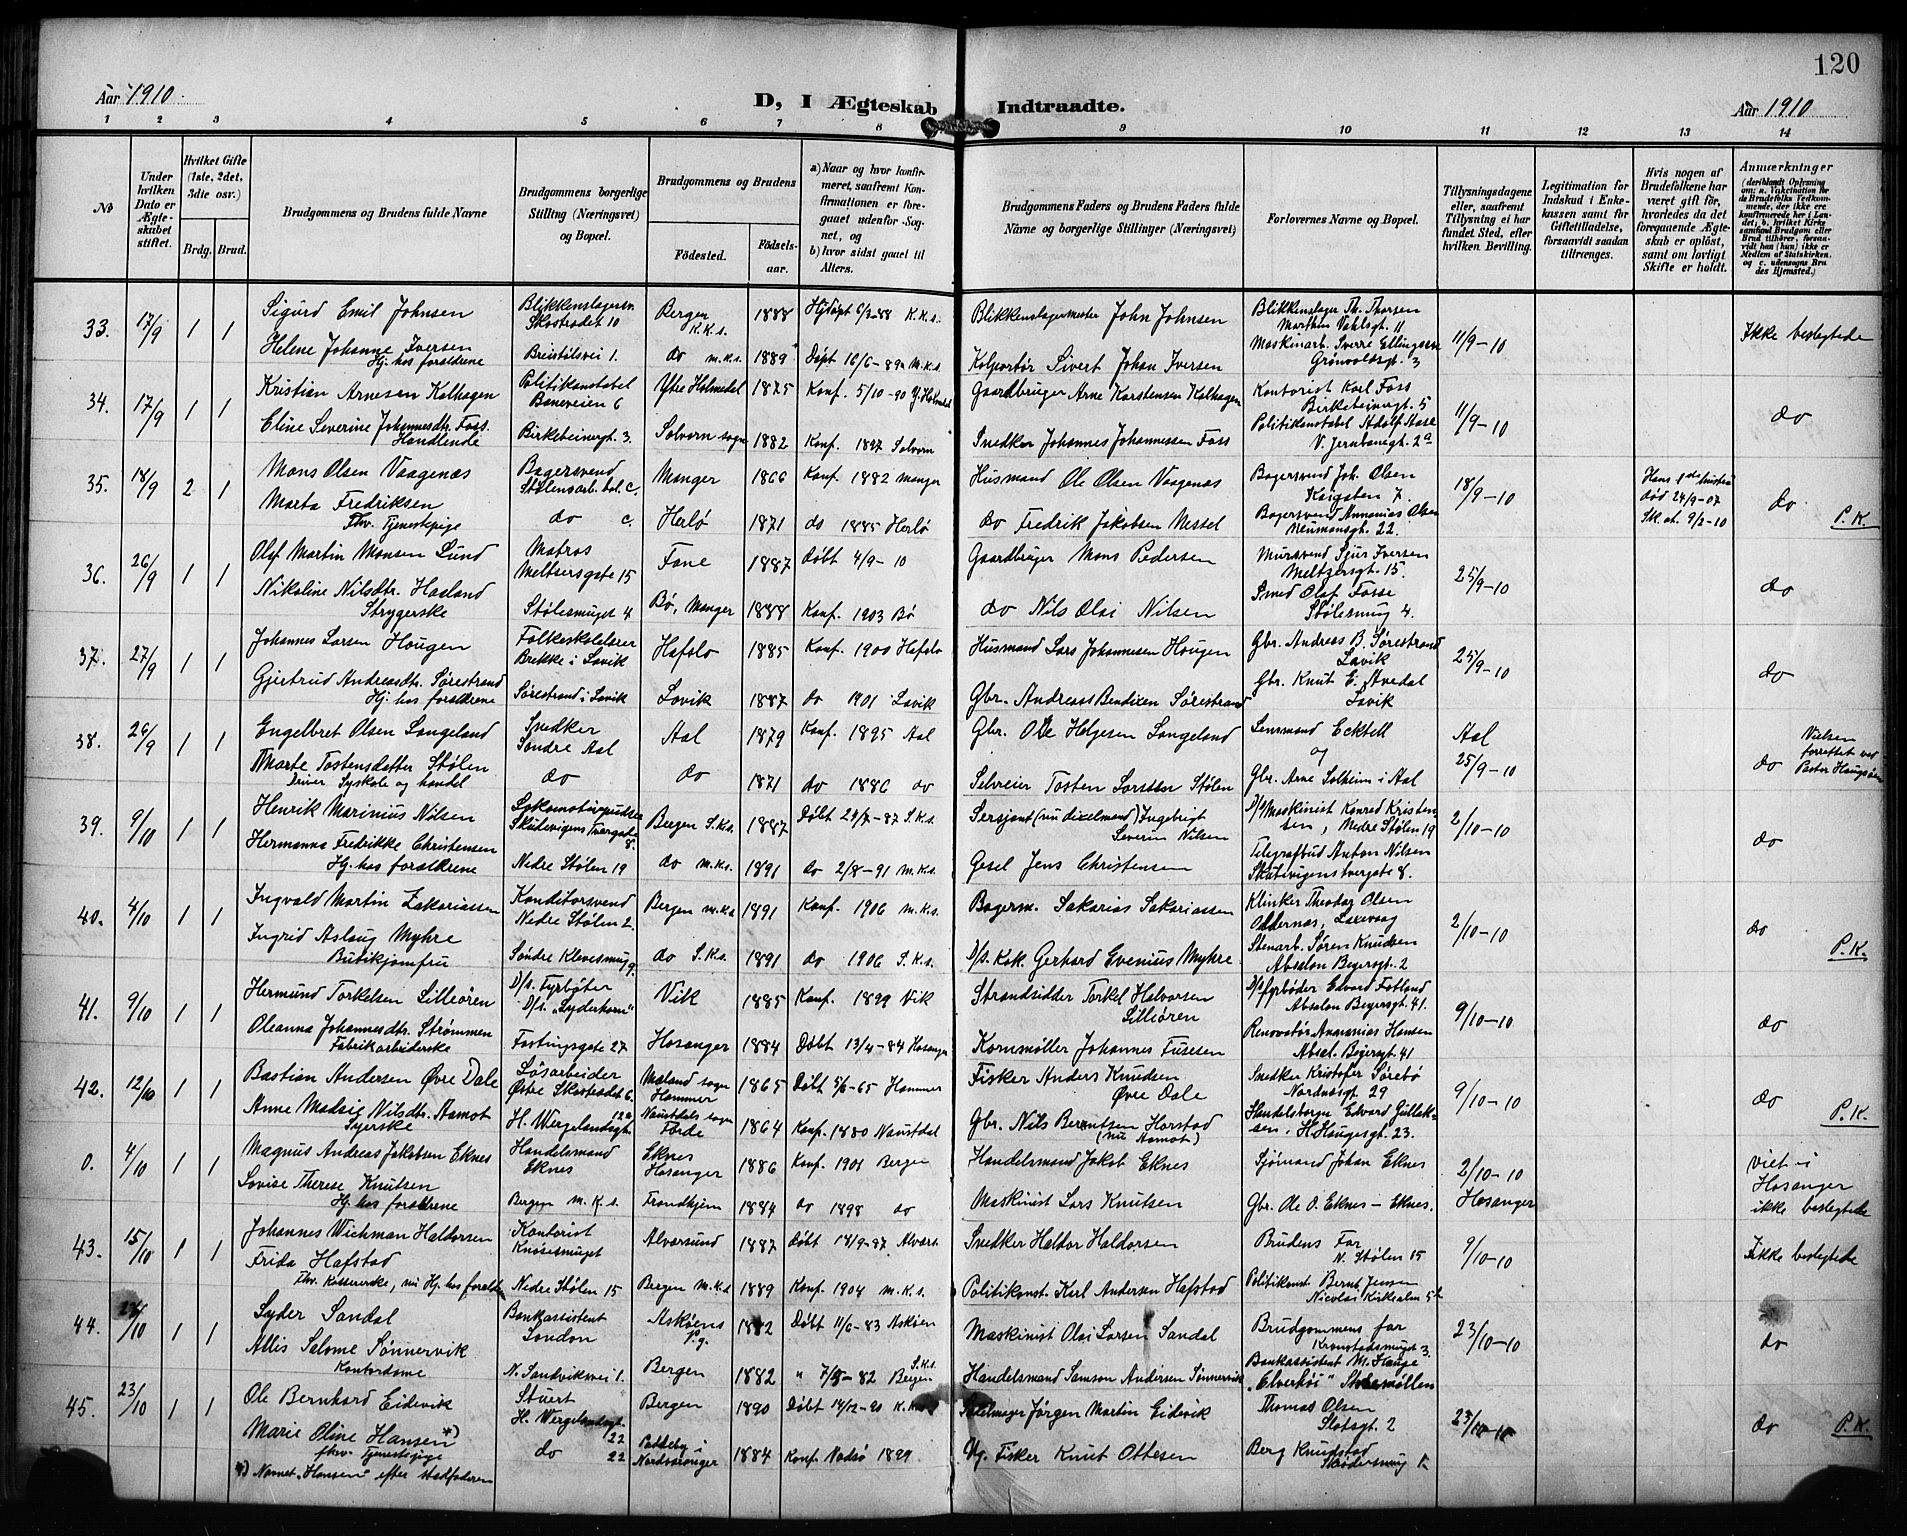 120
Aar 1910.
D, I Ægteskab Indtraadte.
Aar 1910
1 2 3 4 5 6 7 8 9 10 11 12 13 14
No
Under hvilken Dato er Ægteskabet stiftet.
Hvilket Gifte (1ste, 2det, 3die osv.)
Brdg. Brud.
Brudgommens og Brudens fulde Navne
Brudgommens borgerlige Stilling (Næringsvei) og Bopæl.
Brudgommens og Brudens
Fødested.
Fødselsaar.
a) Naar og hvor konfirmeret, saafremt Konfirmationen er foregaaet udenfor Sognet, og
b) hvor sidst gaaet til Alters.
Brudgommens Faders og Brudens Faders fulde Navne og borgerlige Stillinger (Næringsvei)
Forlovernes Navne og Bopæl.
Tillysningsdagene eller, saafremt Tillysning ei har fundet Sted, efter hvilken Bevilling.
Legitimation for Indskud i Enkekassen samt for Giftetilladelse, forsaavidt saadan tiltrænges.
Hvis nogen af Brudefolkene har været gift før, hvorledes da det foregaaende Ægteskab er opløst, samt om lovligt Skifte er holdt.
Anmærkninger
33. 17/9 1 1 Sigurd Emil Johnsen Blikkenslagersv. Skostrædet 10 Bergen K.K.s. 1888 K.K.s. Blikkenslagermester John Johnsen Blikkenslager Th. Thorsen Marthin Vahlsgt. 11 11/9-10 Ikke beslegtede
Helene Johanne Iversen Hj. hos forældrene Breistølsvei 1. do m.k.s. 1889 Døpt 16/6-89 M.k.s. Kolportør Sivert Johan Iversen Maskinarb. Sverre Ellingsen Grønvoldsgt. 3
34. 17/9 1 1 Kristian Arnesen Kalhagen Politikonstabel Baneveien 6 Ytre Holmedal 1875 Konf. 5/10-90 Y. Holmedal Gaardbruger Arne Karstensen Kalhagen Kontorist Karl Foss Birkebeinergt. 5 11/9-10 do
Eline Severine Johannesdtr. Foss. Handlende Birkebeinergt. 3. Solvorn sogn 1882 Konf. 1897 Solvorn Snedker Johannes Johannessen Foss Politikonstabel Adolf Aase V. Jernbanegt. 2a
35. 18/9 2 1 Mons Olsen Vaagenæs Bagersvend Stølens arb. bol. c. Manger 1866 Konf. 1882 Manger Husmand Ole Olsen Vaagenæs Bagersvend Joh. Olsen Kaigaten 7. 18/9-10 Hans 1ste hustru død 24/9-07 Sk. at. 9/2-10 do P.K.
Marta Fredriksen Fhv. Tjenestepige do c. Herlø 1871 do 1885 Herlø do Fredrik Jakobsen Nessel Bagersvend Annanias Olsen Neumansgt. 22.
36. 26/9 1 1 Olaf Martin Monsen Lund Matros Meltzersgate 15 Fane 1887 Døbt 4/9-10 Gaardbruger Mons Pedersen Mursvend Sjur Iversen Meltzersgt. 15. 25/9-10 do
Nikoline Nilsdtr. Hasland Strygerske Stølesmuget 4 Bø, Manger 1888 Konf. 1903 Bø do Nils Olai Nilsen Smed Olaf Fosse Stølesmug 4.
37. 27/9 1 1 Johannes Larsen Hougen Folkeskolelærer Brekke i Lavik Hafslo 1885 Konf. 1900 Hafslo Husmand Lars Johannesen Hougen Gbr. Andreas B. Sørestrand Lavik 25/9-10 do
Gjertrud Andreasdtr. Sørestrand Hj. hos forældrene Sørestrand i Lavik Lavik 1887 do 1901 Lavik Gbr. Andreas Bendixen Sørestrand Gbr. Knut E. Avedal Lavik
38. 26/9 1 1 Engelbret Olsen Langeland Snedker Søndre Aal Aal 1879 Konf. 1895 Aal Gbr. Ole Helgesen Langeland Lensmand Ecktell og Aal 25/9-10 do Vielsen forrettet ved Pastor
Marte Tostensdatter Stølen Driver Syskole og handel do do 1871 do 1886 do Selveier Tosten Larssen Stølen Gbr. Arne Solheim i Aal
39. 9/10 1 1 Henrik Marinius Nilsen Lokomotivpudser Skudevigens Tværgade 8. Bergen S.K.s. 1887 Døbt 24/7-87 S.K.s. Sersjant (nu dixelmand) Ingebrigt Severin Nilsen D/s Maskinist Konrad Kristensen, Nedre Stølen 19 2/10-10 do
Hermanna Fredrikke Christensen Hj. hos forældrene Nedre Stølen 19 do m.k.s. 1891 do 2/8-91 M.K.s. Gesel Jens Christensen Telegrafbud Anton Nilsen Skutevigens tvergate 8.
40. 4/10 1 1 Ingvald Martin Zakariassen Konditorsvend Nedre Stølen 2. Bergen m.k.s 1891 Konf. 1906 m.k.s. Bagerm. Sakarias Sakariassen Klinker Theodor Olsen Oddernæs, Laxevaag 2/10-10 do P.K.
Ingrid Aslaug Myhre Butikjomfru Søndre Klevesmug 9. do S.K.s. 1891 do 1906 S.K.s. D/s. Kok. Gerhard Evenius Myhre Stenarb. Søren Knudsen Absalon Beyersgt. 2
41. 9/10 1 1 Hermund Torkelsen Lilleøren D/s. Fyrbøter D/s. "Lyderhorn" Vik 1885 Konf. 1899 Vik Strandsidder Torkel Halvorsen Lilleøren D/s fyrbøder Edvard Fotland Absalon Beyersgt. 41. 9/10-10 do
Oleanna Johannesdtr. Strømmen Fabrikarbeiderske Fastingsgate 27 Hosanger 1884 Døbt 13/4-84 Hosanger Kornmøller Johannes Fusesen Renovatør Ananias Hansen Absal. Beyersgt. 41
42. 12/10 1 1 Bastian Andersen Øvre Dale Løsarbeider Østre Skostrædet 6. Mæland sogn Hammer 1865 Døbt 5/6-65 Hammer Fisker Anders Knudsen Øvre Dale Snedker Kristofer Sørebø Nordnæsgt 29 9/10-10 do P.K.
Anne Madsig Nilsdtr. Aamot Syerske H. Wergelandsgt. 12a Naustdals sogn Førde 1864 Konf. 1880 Naustdal Gbr. Nils Berentsen Horstad (nu Aamot) Handelsborger Edvard Gullaksen, H. Haugesgt. 23.
0. 4/10 1 1 Magnus Andreas Jakobsen Eknes Handelsmand Eknes Eknes Hosanger 1886 Konf. 1901 Bergen Handelsmand Jakob Eknes Sjømand Johan Eknes 2/10-10 Hosanger Viet i Hosanger ikke beslegtede
Lovise Therese Knutsen Hj. hos forældrene Bergen M.K.s. Trondhjem 1884 do 1898 do Maskinist Lars Knutsen Gbr. Ole O. Eknes - Eknes.
43. 15/10 1 1 Johannes Wichman Haldorsen Kontorist Knøsesmuget Alversund 1887 Døbt 14/9-87 Alvers. Snedker Haldor Haldorsen Brudens Far N. Stølen 15 9/10-10 Ikke beslegtede
Frida Hafstad Fhv. Kassererske, nu Hj. hos forældre Nedre Stølen 15 Bergen m.k.s 1889 Konf. 1904 m.k.s. Politikonst. Karl Andersen Hafstad Politikonst. Bernt Jensen Nicolai Kirkealm. 5b
44. 24/10 1 1 Lyder Sandal Bankassistent London Askøens Pg. 1882 Døbt 11/6-83 Askøen Maskinist Olai Larsen Sandal Brudgommens far Kronstadsmuget 3. 23/10-10 do
Allis Salome Sønnervik Kontordame N. Sandviksvei 1. Bergen 1882 " 7/5-82 S.K.s. Bergen Handelsmand Samson Andersen Sønnervik Bankassistent M. Hauge "Elverhøi" Storemøllen
45. 23/10 1 1 Ole Bernhard Eidevik Stuert H. Wergelandsgt. 22 Bergen 1890 Døbt 14/12-90 Jørgen Martin Eidevik Thomas Olsen Slotsgt. 2 23/10-10 do P.K.
Marie Oline Hansen *) fhv. Tjenestepige do 22 Paddeby i Nordvaranger 1884 Konf. Vadsø 1899 Ug. Fisker Knut Ottesen Berg Knudstad
*) Navnet "Hansen" efter stedfaderen